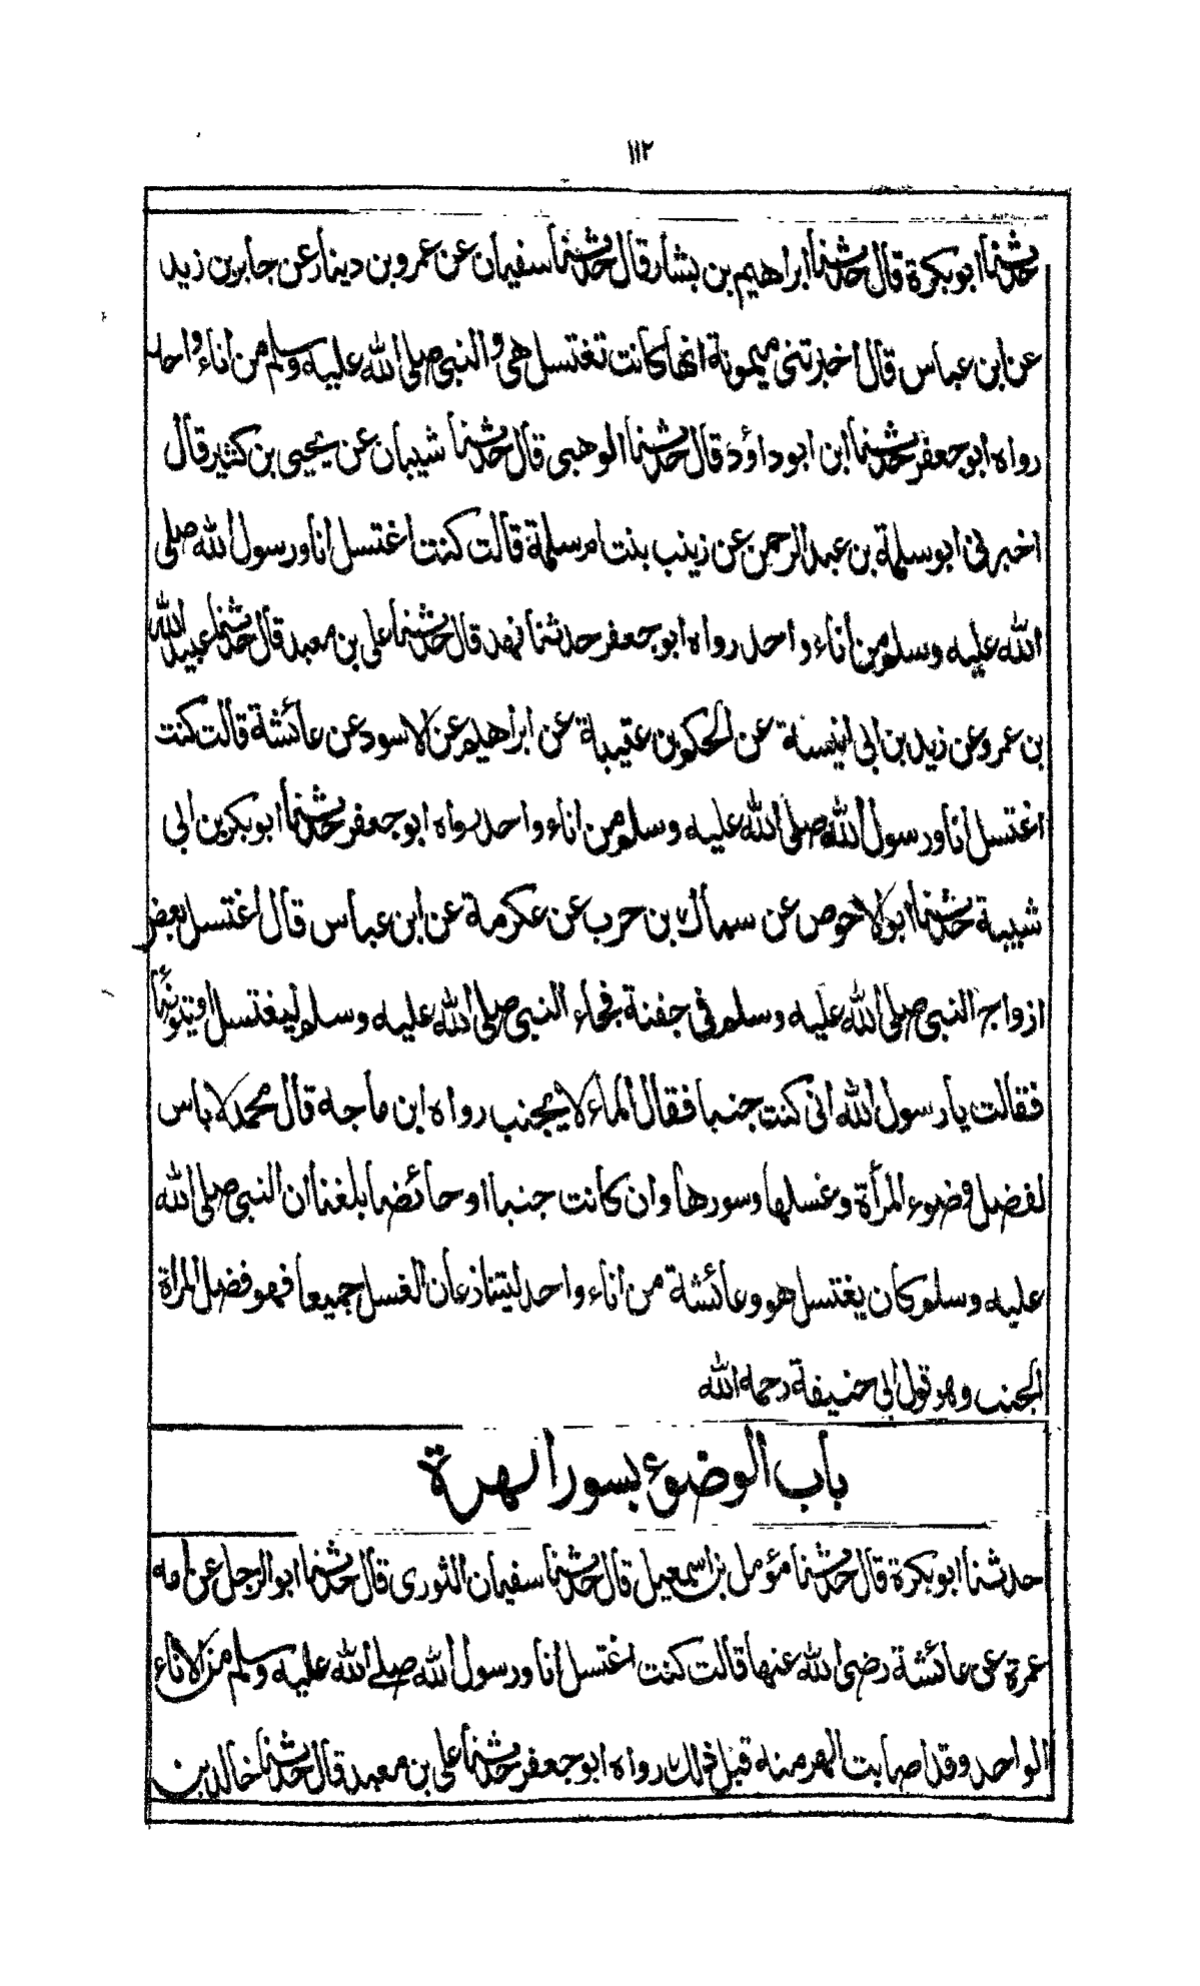 ١١٢
حدثنا ابو بكرة قال حدثنا ابراهيم بن بشار قال حدثنا سفيان عن عمرو بن دينار عن جابر بن زيد
عن ابن عباس قال اخبرتنى ميمونة انها كانت تغتسل هى والنبى صلى الله عليه وسلم من اناء واحد
رواه ابو جعفر حدثنا ابن ابو داؤد قال حدثنا الوهبى قال حدثنا شيبان عن يحيى بن كثير قال
اخبرنى ابو سلمة بن عبد الرحمن عن زينب بنت ام سلمة قالت كنت اغتسل انا ورسول الله صلى
الله عليه وسلم من اناء واحد رواه ابو جعفر حدثنا نهد قال حدثنا على بن معبد قال حدثنا عبيد الله
بن عمرو عن زيد بن ابى انيسة عن الحكم بن عتيبة عن ابراهيم عن الاسود عن عائشة قالت كنت
اغتسل انا ورسول الله صلى الله عليه وسلم من اناء واحد رواه ابو جعفر حدثنا ابو بكر بن ابى
شيبة حدثنا ابو الاحوص عن سماك بن حرب عن عكرمة عن ابن عباس قال اغتسل بعض
ازواج النبى صلى الله عليه وسلم فى جفنة فجاء النبى صلى الله عليه وسلم ليغتسل او يتوضأ
فقالت يا رسول الله انى كنت جنبا فقال الماء لا يجنب رواه ابن ماجه قال محمد لا باس
لفضل وضوء المرأة وغسلها وسورها وان كانت جنبا او حائضا بلغنا ان النبى صلى الله
عليه وسلم كان يغتسل هو وعائشة من اناء واحد ليتنازعان الغسل جميعا فهو فضل المراة
الجنب وهو قول ابى حنيفة رحمه الله
باب الوضوء بسور الهرة
حدثنا ابو بكرة قال حدثنا مؤمل بن اسمعيل قال حدثنا سفيان الثورى قال حدثنا ابو الرجل عن امه
عمرة عن عائشة رضى الله عنها قالت كنت اغتسل انا ورسول الله صلے الله عليه وسلم من الاناء
الواحد وقد اصابت الهر منه قبل ذلك رواه ابو جعفر حدثنا على بن معبد قال حدثنا خالد بن